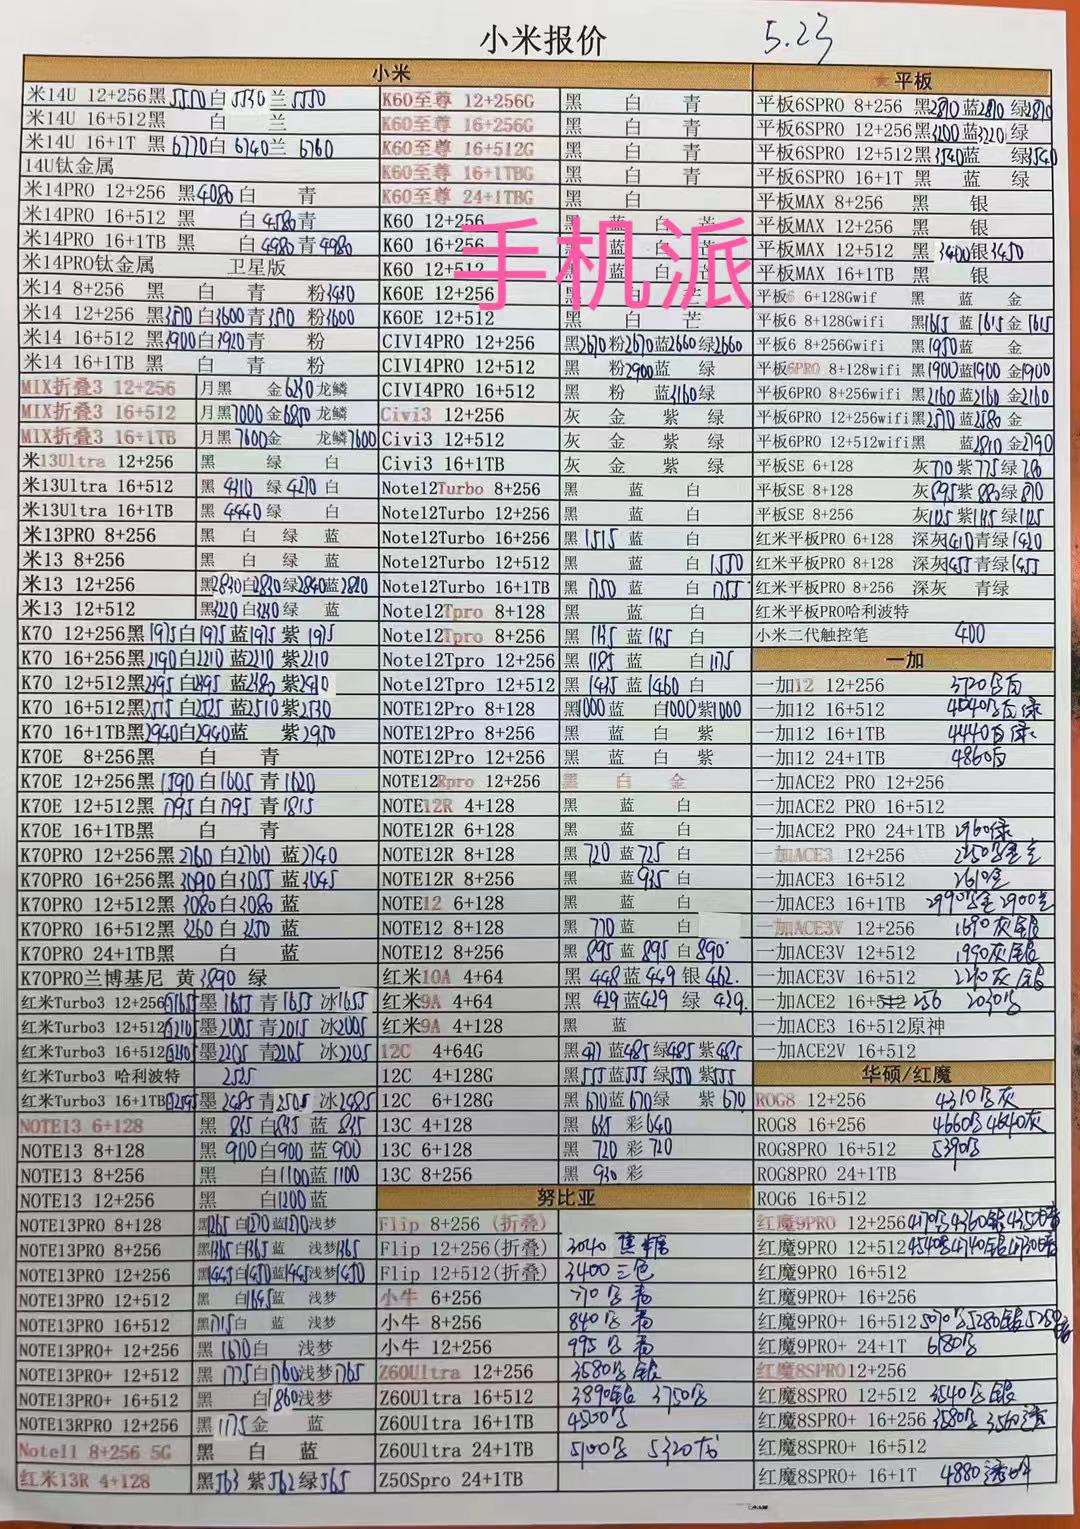 小米报价 5.23
小米
米14U 12+256黑 白5530 兰5550
米14U 16+512黑 白 兰
米14U 16+1T 黑6770白6740兰6760
14U钛金属
米14PRO 12+256 黑4080白 青
米14PRO 16+512 黑 白4580青
米14PRO 16+1TB 黑 白4980青4980
米14PRO钛金属 卫星版
米14 8+256 黑 白 青 粉3430
米14 12+256 黑3570白3600青3570 粉3600
米14 16+512 黑3900白3920青 粉
米14 16+1TB 黑 白 青 粉
MIX折叠3 12+256 月黑 金6250龙鳞
MIX折叠3 16+512 月黑7000金6850龙鳞
MIX折叠3 16+1TB 月黑7600金 龙鳞7600
米13Ultra 12+256 黑 绿 白
米13Ultra 16+512 黑 4310 绿 4270 白
米13Ultra 16+1TB 黑 4440 绿 白
米13PRO 8+256 黑 白 绿 蓝
米13 8+256 黑 白 绿 蓝
米13 12+256 黑2830白2830绿2840蓝2820
米13 12+512 黑3220白3230绿 蓝
K70 12+256黑1975白1975蓝1975紫1975
K70 16+256黑2190白2210蓝2210紫2210
K70 12+512黑2395白2395蓝2380紫2410
K70 16+512黑2515白2525蓝2510紫2530
K70 16+1TB黑2940白2940蓝 紫2950
K70E 8+256黑 白 青
K70E 12+256黑1590白1605青1620
K70E 12+512黑1795白1795青1815
K70E 16+1TB黑 白 青
K70PRO 12+256黑2760白2760蓝2740
K70PRO 16+256黑3090白3055蓝3045
K70PRO 12+512黑3080白3080蓝
K70PRO 16+512黑3260白3250蓝
K70PRO 24+1TB黑 白 蓝
K70PRO兰博基尼 黄3890 绿
红米Turbo3 12+256 1655墨1655青1655冰1655
红米Turbo3 12+512 墨2005青2015冰2005
红米Turbo3 16+512 墨2205青2205冰2205
红米Turbo3 哈利波特 2525
红米Turbo3 16+1TB 墨2485青2505冰2485
NOTE13 6+128 黑835白835蓝835
NOTE13 8+128 黑900白900蓝900
NOTE13 8+256 黑 白1100蓝1100
NOTE13 12+256 黑 白1200蓝
NOTE13PRO 8+128 黑1265白1270蓝1270浅梦
NOTE13PRO 8+256 黑1365白1365蓝 浅梦1365
NOTE13PRO 12+256 黑1445白1450蓝1445浅梦1450
NOTE13PRO 12+512 黑 白1645蓝 浅梦
NOTE13PRO 16+512 黑1715白 蓝 浅梦
NOTE13PRO+ 12+256 黑1670白 浅梦
NOTE13PRO+ 12+512 黑1775白1760浅梦1765
NOTE13PRO+ 16+512 黑 白1860浅梦
NOTE13RPRO 12+256 黑1175金 蓝
Note11 8+256 5G 黑 白 蓝
红米13R 4+128 黑563紫562绿565
K60至尊 12+256G 黑 白 青
K60至尊 16+256G 黑 白 青
K60至尊 16+512G 黑 白 青
K60至尊 16+1TBG 黑 白 青
K60至尊 24+1TBG 黑 白
K60 12+256 黑 蓝 白 芒
K60 16+256 黑 蓝 白 芒
K60 12+512 黑 蓝 白 芒
K60E 12+256 黑 白 芒
K60E 12+512 黑 白 芒
手机派
CIVI4PRO 12+256 黑2670粉2670蓝2660绿2660
CIVI4PRO 12+512 黑 粉2900蓝 绿
CIVI4PRO 16+512 黑 粉 蓝3160绿
Civi3 12+256 灰 金 紫 绿
Civi3 12+512 灰 金 紫 绿
Civi3 16+1TB 灰 金 紫 绿
Note12Turbo 8+256 黑 蓝 白
Note12Turbo 12+256 黑 蓝 白
Note12Turbo 16+256 黑1515 蓝 白
Note12Turbo 12+512 黑 蓝 白1550
Note12Turbo 16+1TB 黑1750 蓝 白1755
Note12Tpro 8+128 黑 蓝 白
Note12Tpro 8+256 黑1135蓝1135白
Note12Tpro 12+256 黑1185蓝 白1175
Note12Tpro 12+512 黑1435蓝1460白
NOTE12Pro 8+128 黑1000蓝 白1000紫1000
NOTE12Pro 8+256 黑 蓝 白 紫
NOTE12Pro 12+256 黑 蓝 白 紫
NOTE12Rpro 12+256 黑 白 金
NOTE12R 4+128 黑 蓝 白
NOTE12R 6+128 黑 蓝 白
NOTE12R 8+128 黑720蓝725白
NOTE12R 8+256 黑 蓝935白
NOTE12 6+128 黑 蓝 白
NOTE12 8+128 黑770蓝 白
NOTE12 8+256 黑895蓝895白890
红米10A 4+64 黑448蓝449银462
红米9A 4+64 黑429蓝429绿429
红米9A 4+128 黑 蓝
12C 4+64G 黑477蓝485绿485紫485
12C 4+128G 黑555蓝555绿550紫555
12C 6+128G 黑670蓝670绿 紫670
13C 4+128 黑635彩640
13C 6+128 黑720彩720
13C 8+256 黑930彩
努比亚
Flip 8+256 (折叠)
Flip 12+256(折叠) 3040
Flip 12+512(折叠) 3400三色
小牛 6+256 770
小牛 8+256 840
小牛 12+256 995
Z60Ultra 12+256 3580 银
Z60Ultra 16+512 3890银 3750
Z60Ultra 16+1TB 4500
Z60Ultra 24+1TB 5100 5320
Z50Spro 24+1TB
平板
平板6SPRO 8+256 黑2810蓝2810绿2810
平板6SPRO 12+256黑3200蓝3220绿
平板6SPRO 12+512黑3540蓝 绿3540
平板6SPRO 16+1T 黑 蓝 绿
平板MAX 8+256 黑 银
平板MAX 12+256 黑 银
平板MAX 12+512 黑3400银3450
平板MAX 16+1TB 黑 银
平板6 6+128Gwif 黑 蓝 金
平板6 8+128Gwifi 黑1615蓝1615金1615
平板6 8+256Gwifi 黑1950蓝 金
平板6PRO 8+128wifi 黑1900蓝1900金1900
平板6PRO 8+256wifi 黑2160蓝2160金2160
平板6PRO 12+256wifi黑2570蓝2580金
平板6PRO 12+512wifi黑 蓝2810金2790
平板SE 6+128 灰770紫775绿780
平板SE 8+128 灰895紫880绿870
平板SE 8+256 灰1125紫1135绿1125
红米平板PRO 6+128 深灰1410青绿1420
红米平板PRO 8+128 深灰1455青绿1455
红米平板PRO 8+256 深灰 青绿
红米平板PRO哈利波特
小米二代触控笔 400
一加
一加12 12+256 3730 白
一加12 16+512 4040 白绿
一加12 16+1TB 4440白绿
一加12 24+1TB 4860白
一加ACE2 PRO 12+256
一加ACE2 PRO 16+512
一加ACE2 PRO 24+1TB 2960绿
一加ACE3 12+256 2250
一加ACE3 16+512 2610
一加ACE3 16+1TB 2990 2900
一加ACE3V 12+256 1690灰银
一加ACE3V 12+512 1990灰银
一加ACE3V 16+512 2210灰银
一加ACE2 16+512 256 2030
一加ACE3 16+512原神
一加ACE2V 16+512
华硕/红魔
ROG8 12+256 4310 灰
ROG8 16+256 4660 4640灰
ROG8PRO 16+512 5390
ROG8PRO 24+1TB
ROG6 16+512
红魔9PRO 12+256 4170 4360银4350
红魔9PRO 12+512 4540 4740银4730
红魔9PRO 16+512
红魔9PRO+ 16+256
红魔9PRO+ 16+512 5070 5280银5250
红魔9PRO+ 24+1T 6180
红魔8SPRO12+256
红魔8SPRO 12+512 3540 银
红魔8SPRO+ 16+256 3580 3560透
红魔8SPRO+ 16+512
红魔8SPRO+ 16+1T 4880透